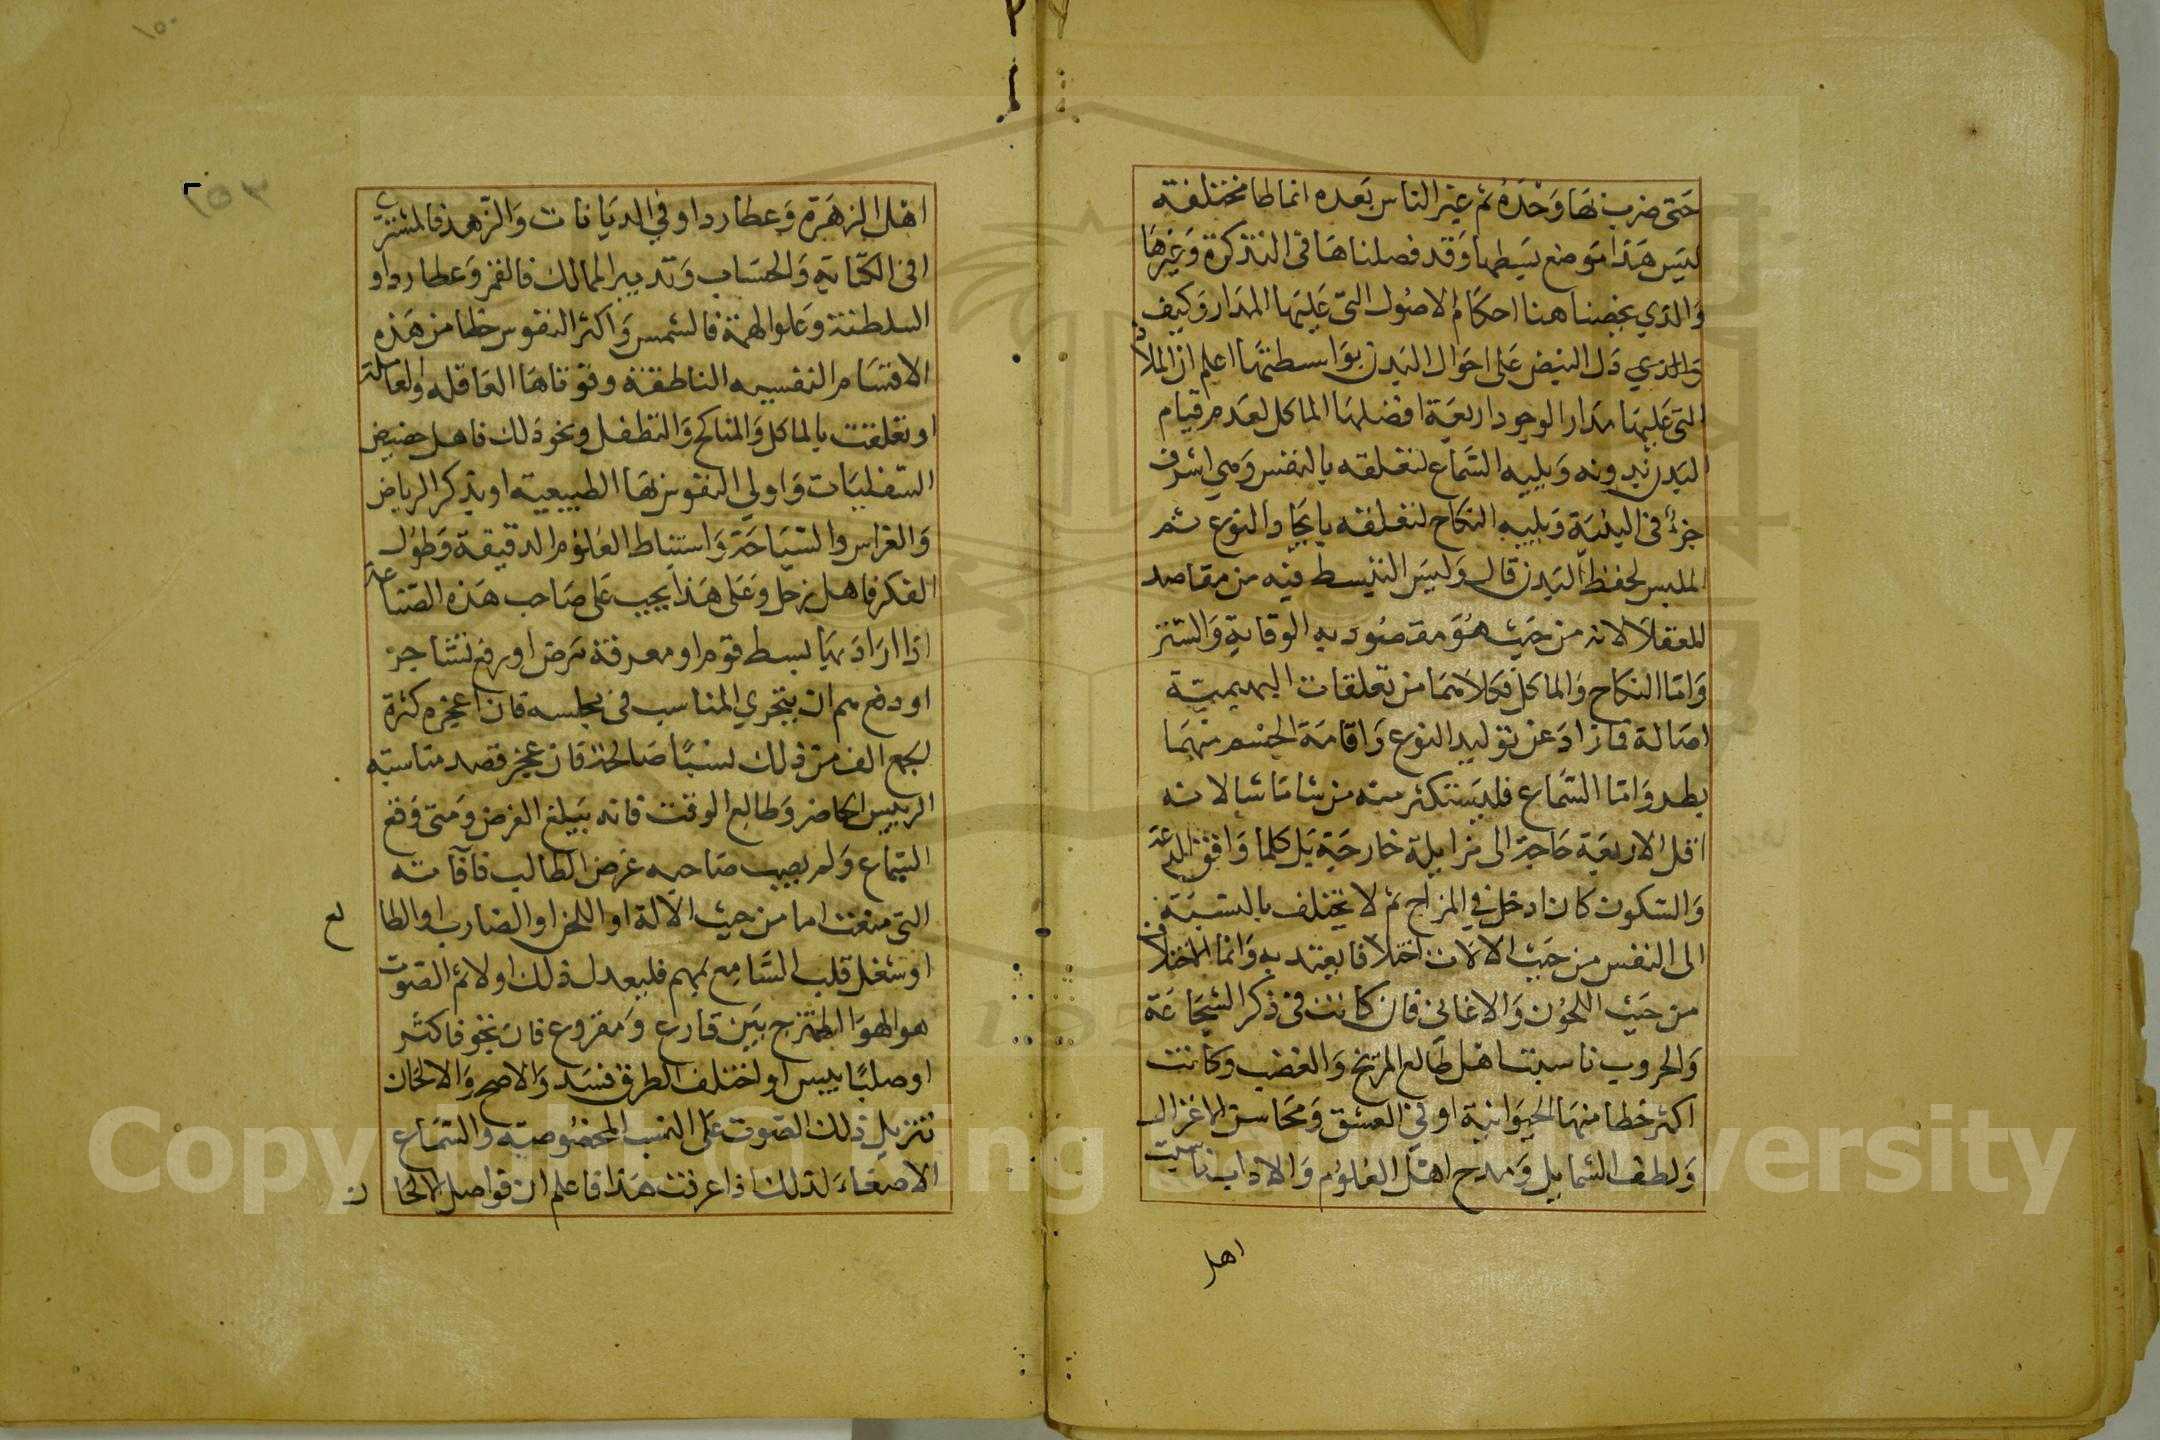 حتى ضرب بها وحده ثم غير الناس بعده انماطا مختلفة
ليس هذا موضع بسطها وقد فصلناها في التذكرة وغيرها
والذي يخصنا هنا احكام الاصول التي عليها المدار وكيف
والذي دل النبض على احوال البدن بواسطتها اعلم ان الملاذ
التي عليها مدار الوجود اربعة افضلها الماكل لعدم قيام
البدن بدونه ويليه السماع لتعلقه بالنفس وهي اشرف
جزء في البنية ويليه النكاح لتعلقه بايجاد النوع ثم
الملبس لحفظ البدن قال وليس التبسط فيه من مقاصد
العقلا لانه من حيث هو مقصود به الوقاية والستر
واما النكاح والماكل فكلاهما من تعلقات البهيمية
اصالة فما زاد عن توليد النوع واقامة الجسم منهما
بطر واما السماع فليستكثر منه من شا ما شا لانه
اقل الاربعة حاجة الى مزايلة خارجية بل كلما وافق الدعة
والسكون كان ادخل في المزاج ثم لا يختلف بالنسبة
الى النفس من حيث الالات اختلافا يعتد به وانما الاختلاف
من حيث اللحون والاغاني فان كانت في ذكر الشجاعة
والحروب ناسبت اهل طالع المريخ والغضب وكانت
اكثر خطا منها الحيوانية او في العشق ومحاسن الاغزال
ولطف الشمايل ومدح اهل العلوم والاداب ناسبت
اهل
اهل الزهرة وعطارد او في الديانات والزهد فالمشتري
افي الكتابة والحساب وتدبير الممالك فالقمر وعطارد او
السلطنة وعلو الهمة فالشمس واكثر النفوس خطا من هذه
الاقسام النفسيه الناطقة وقوتاها العاقله والعاملة
او تعلقت بالماكل والمناكح والتطفل ونحو ذلك فاهل حضيض
السفليات واولي النفوس بها الطبيعية او بذكر الرياض
والغراس والسياحة واستنباط العلوم الدقيقة وطول
الفكر فاهل زحل وعلى هذا يجب على صاحب هذه الصناعة
اذا اراد بها بسط قوم او معرفة مرض او رفع تشاجر
او دفع هم ان يتحرى المناسب في مجلسه فان اعجزه كثرة
الجمع الف من ذلك نسبا صالحة فان عجز قصد مناسبة
الرييس الحاضر وطالع الوقت فانه يبلغ الغرض ومتى وقع
السماع ولم يصب صاحبه غرض الطالب فافاته
التي منعت اما من حيث الالة او اللحن او الضارب او الطا
لع
او شغل قلب السامع بمهم فليعدل ذلك اولا ثم الصوت
هو الهوا الممتزج بين قارع ومقروع فان نحو فاكثر
او صلبا بيبس او اختلف الطرق فسد والاصح والالحان
تنزيل ذلك الصوت على النسب المخصوصة والسماع
الاصغاء لذلك اذا عرفت هذا فاعلم ان فواصل الالحا
ن
Copyright © King Saud University